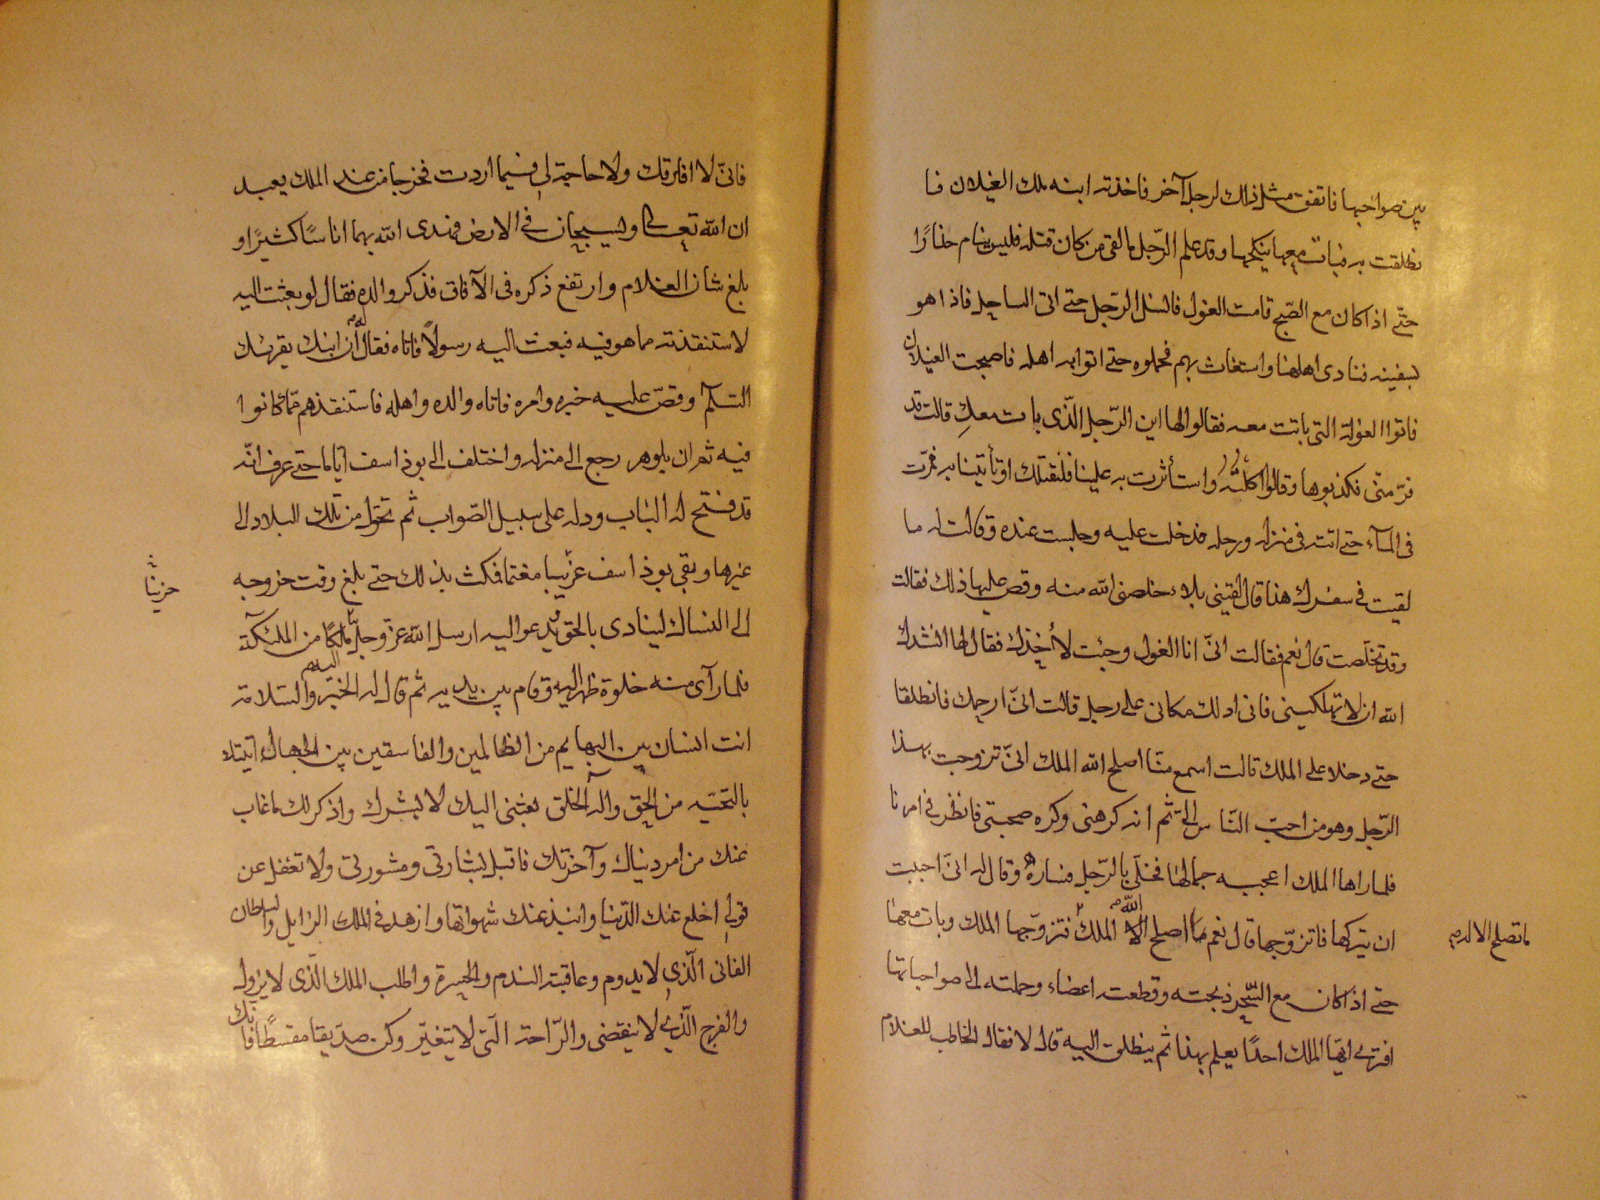 بين صواحبها فاتفق مثل ذلك لرجل آخر فاخذته ابنة ملك الغيلان فا
نطلقت به فبات معها ينكحها وقد علم الرجل ما لقى من كان قتله فليس ينام حذارًا
حتى اذا كان مع الصبح قامت الغول فانسل الرجل حتى اتى الساحل فاذا هو
بسفينة فنادى اهلها واستغاث بهم فحملوه حتى اتوا به اهله فاصبحت الغيلان
فاتوا الغولة التى باتت معه فقالوا لها اين الرجل الذى بات معكِ قالت قد
فرّ منّى فكذبوها وقالوا اكلته واستأثرت به علينا فلنقتلك او تأتينا به فمرّت
فى المآء حتى اتته فى منزله ورحله فدخلت عليه وجلست عنده وقالت له ما
لقيت فى سفرك هذا قال لقينى بلاء خلصنى الله منه وقص عليها ذلك فقالت
وقد تخلصت قال نعم فقالت انّى انا الغول وجئت لأخذك فقال لها انشدك
الله ان لا تهلكينى فانى ادلك مكانى على رجل قالت انّى ارحمك فانطلقا
حتى دخلا على الملك قالت اسمع منّا اصلح الله الملك انّى تزوجت بهذا
الرّجل وهو من احبّ النّاس الىّ ثم انه كرهنى وكره صحبتى فانظر فى امرنا
فلما راها الملك اعجبه جمالها فخلى بالرّجل فساره وقال له انّى احببت
ان تتركها فاتزوّجها قال نعم اصلح الله الملك فتزوّجها الملك وبات معها
ما تصلح الا له
حتى اذا كان مع السّحر ذبحته وقطعت اعضاءه وحملته الى صواحباتها
افترى ايّها الملك احدًا يعلم بهذا ثم ينطلق اليه قال لا فقال الخاطب للغلام
فانّى لا افارقك ولا حاجة لى فيما اردت فخرجا من عند الملك يعبد
ان الله تعالى ويسيحان فى الارض فهدى الله بهما اناسًا كثيرًا و
بلغ شان الغلام وارتفع ذكره فى الآفاق فذكر والده فقال لو بعثت اليه
لاستنقذته مما هو فيه فبعث اليه رسولاً فاتاه فقال له ان ابنك يقرئك
السّلم وقصّ عليه خبره وامره فاتاه والده واهله فاستنقذهم ممّا كانوا
فيه ثم ان بلوهر رجع الى منزله واختلف الى يوذاسف ايّاما حتى عرف انّه
قد فتح له الباب ودله على سبيل الصّواب ثم تحوّل من تلك البلاد الى
غيرها وبقى يوذاسف حزينا مغتما فمكث بذلك حتى بلغ وقت خروجه
حزينًا
الى النساك لينادى بالحق ويدعو اليه ارسل الله عزّ وجلّ ملكًا من الملئكة
فلما رآى منه خلوة ظهر اليه وقام بين يديه ثم قال له الخير والسّلامة
انت انسان بين البهايم من الظالمين والفاسقين بين الجهال اتيتك
بالتحيّة من الحق واله الخلق بعثنى اليك لابشرك واذكر لك ما غاب
عنك من امر دنياك وآخرتك فاقبل بشارتى ومشورتى ولا تغفل عن
قولى اخلع عنك الدّنيا وانبذ عنك شهواتها وازهد فى الملك الزايل والسلطان
الفانى الّذى لا يدوم وعاقبته الندم والحسرة واطلب الملك الّذى لا يزول
والفرح الّذى لا ينقضى والرّاحة الّتى لا تتغيّر وكن صدّيقا مقسطًا فانك